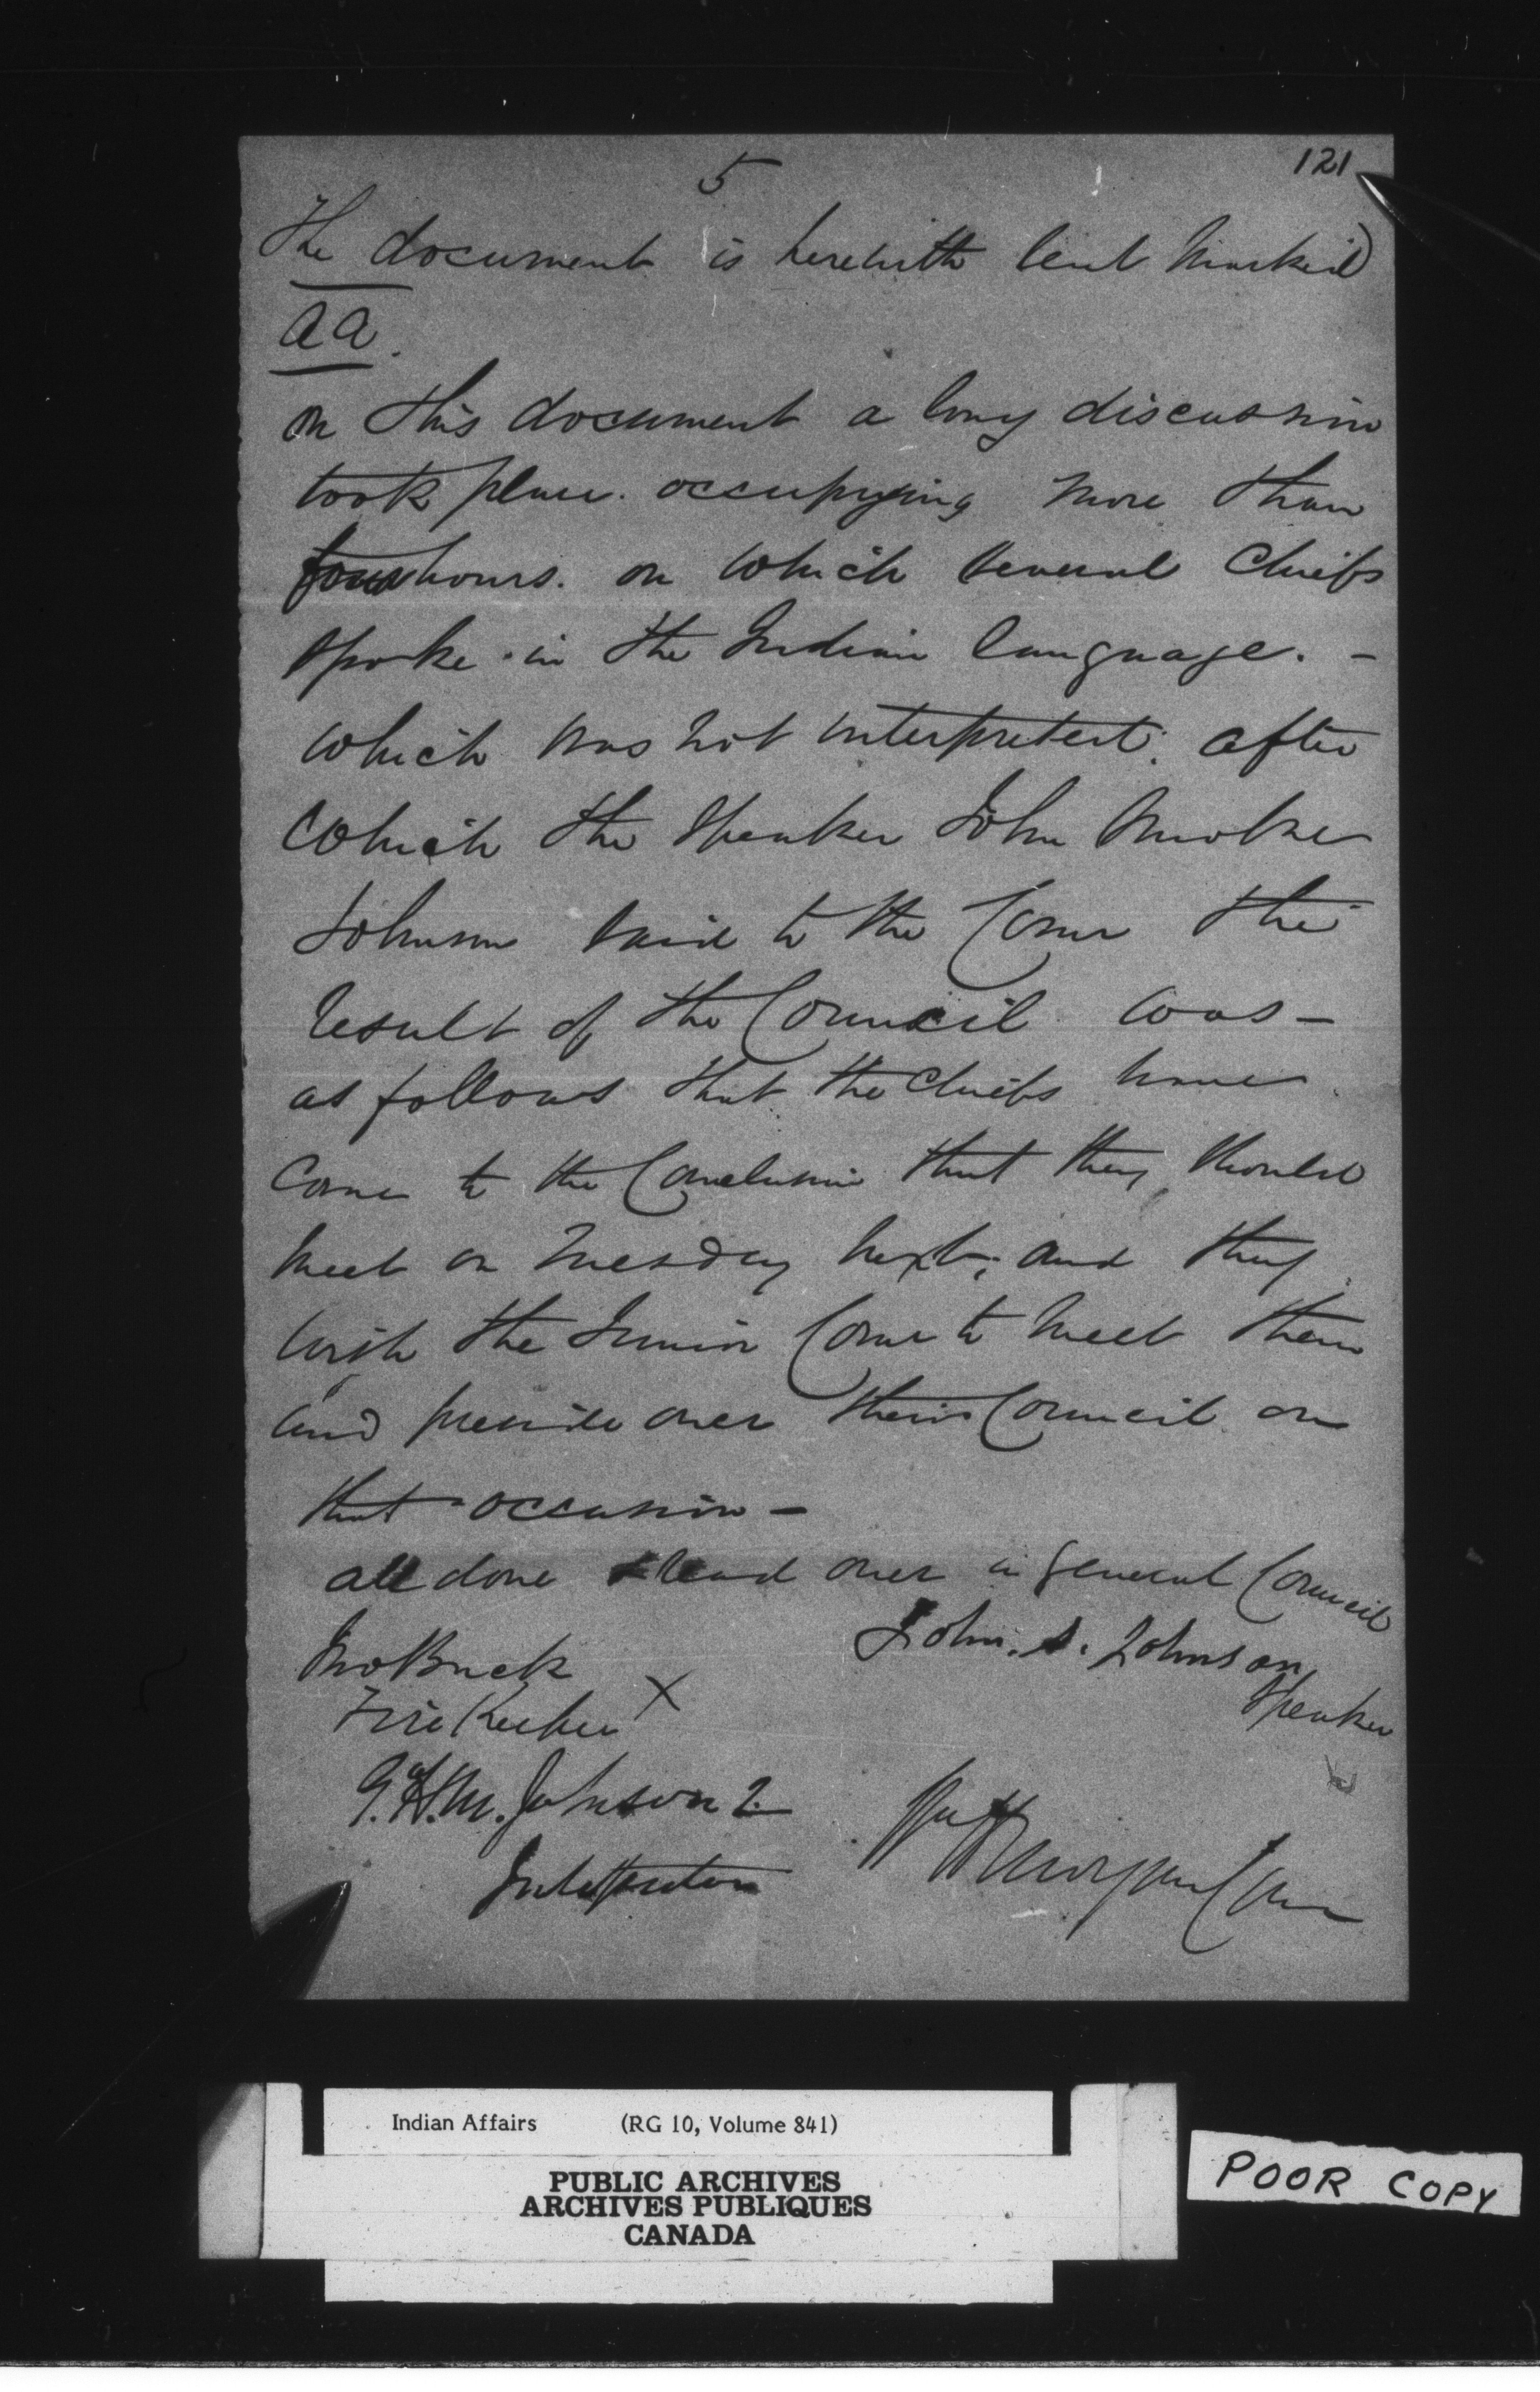 5
121
The document is herewith sent marked
aa.
on this document a long discussion
took place. occupying more than
four hours. on which several Chiefs
spoke in the Indian language. -
which was not interpreted. after
which the Speaker John Smoke
Johnson said to the Comr the
result of the Council was -
as follows that the Chiefs have
come to the Conclusion that they should
meet on Tuesday next, and they
wish the Junior Comr to meet them
and preside over their Council on
that occasion -
all done & read over in general Council
John. S. Johnson
Speaker
Jno Buck
Fire Keeper X
G. H. M. Johnson
Interpreter
Indian Affairs (RG 10, Volume 841)
PUBLIC ARCHIVES
ARCHIVES PUBLIQUES
CANADA
POOR COPY